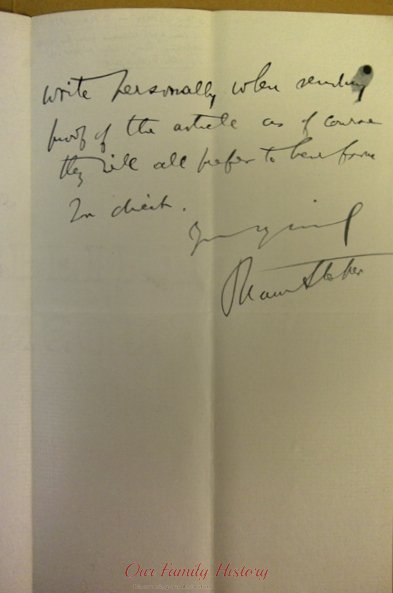 write personally when sending
proof of the article as of course
they will all prefer to hear from
you direct.
Bram Stoker
Our Family History